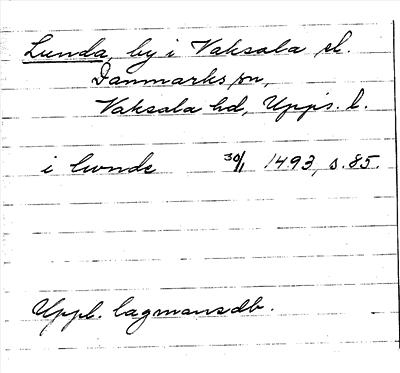 Lunda, by i Vaksala sk.
Danmarks sn,
Vaksala hd, Upps. l.
i lunde 30/1 1493, s. 85.
Uppl. lagmansdb.